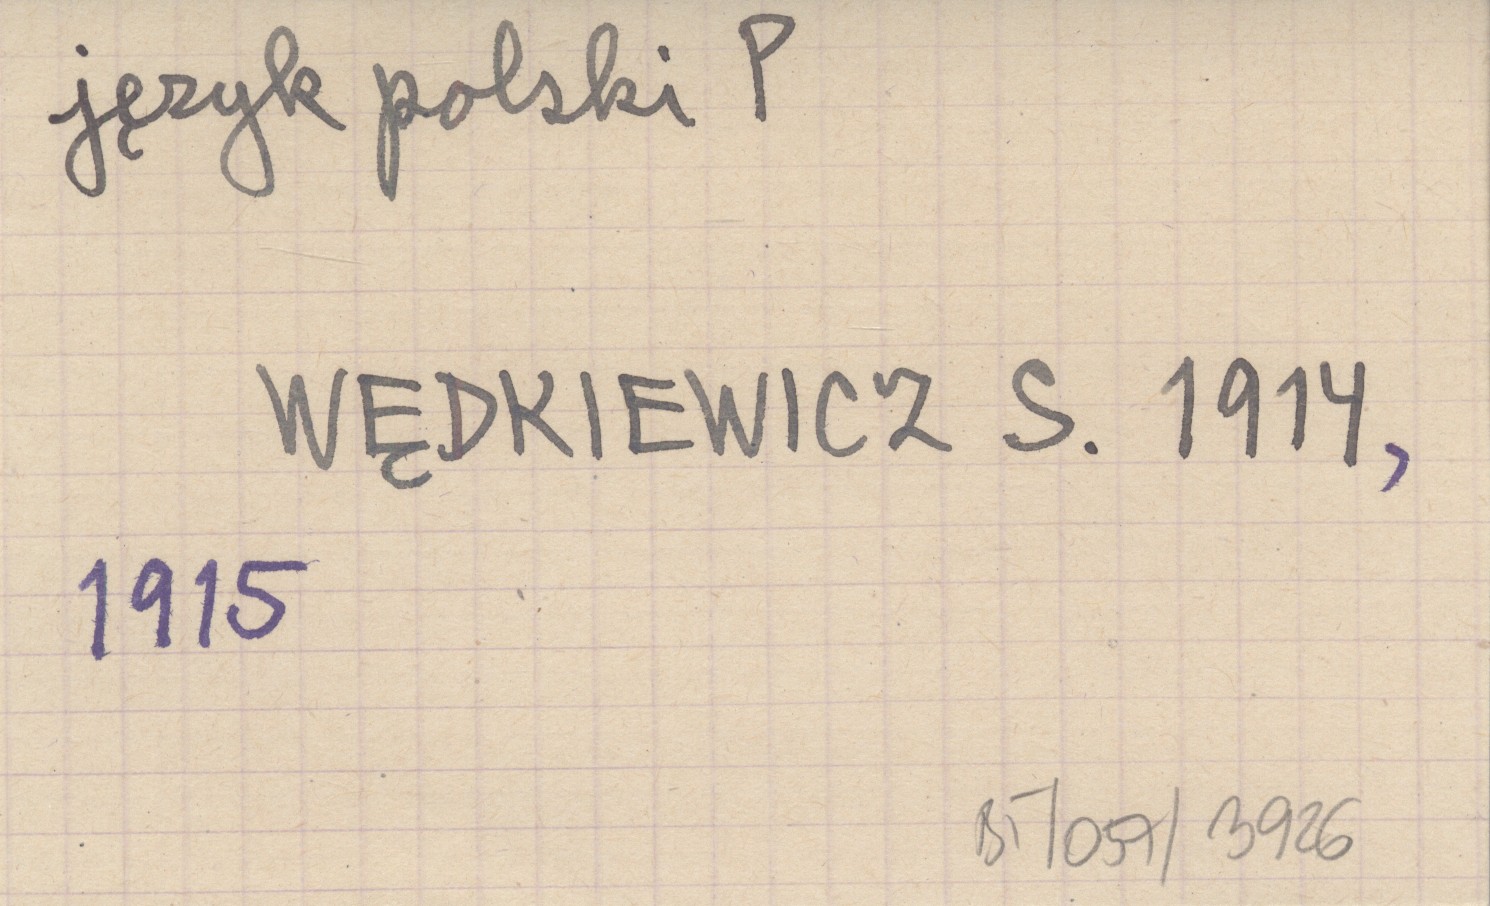 język polski P
WĘDKIEWICZ S. 1914,
1915
BT/057/3926